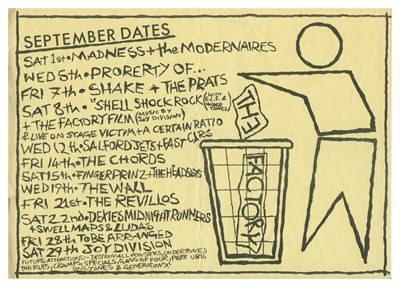 SEPTEMBER DATES
SAT 1st • MADNESS + the MODERNAIRES
WED 5th • PRORERTY OF...
FRI 7th • SHAKE + THE PRATS
SAT 8th • "SHELL SHOCK ROCK
+ THE FACTORY FILM (MUSIC BY JOY DIVISION)
& LIVE ON STAGE VICTIM + A CERTAIN RATIO
WED 12th • SALFORD JETS + FAST CARS
FRI 14th • THE CHORDS
SAT 15th • FINGERPRINZ + THE HEADBOYS
WED 19th • THE WALL
FRI 21st • THE REVILLOS
SAT 22nd • DEXIES MIDNIGHT RUNNERS
+ SWELL MAPS & LUDAS
FRI 28th TO BE ARRANGED
SAT 29th JOY DIVISION
FUTURE ATTRACTIONS:- DESTROY ALL MONSTERS, UNDERTONES
THE RUTS, CRAMPS, SPECIALS, GANG OF FOUR, PERE UBU,
& GENERATION X
THE
FACTORY